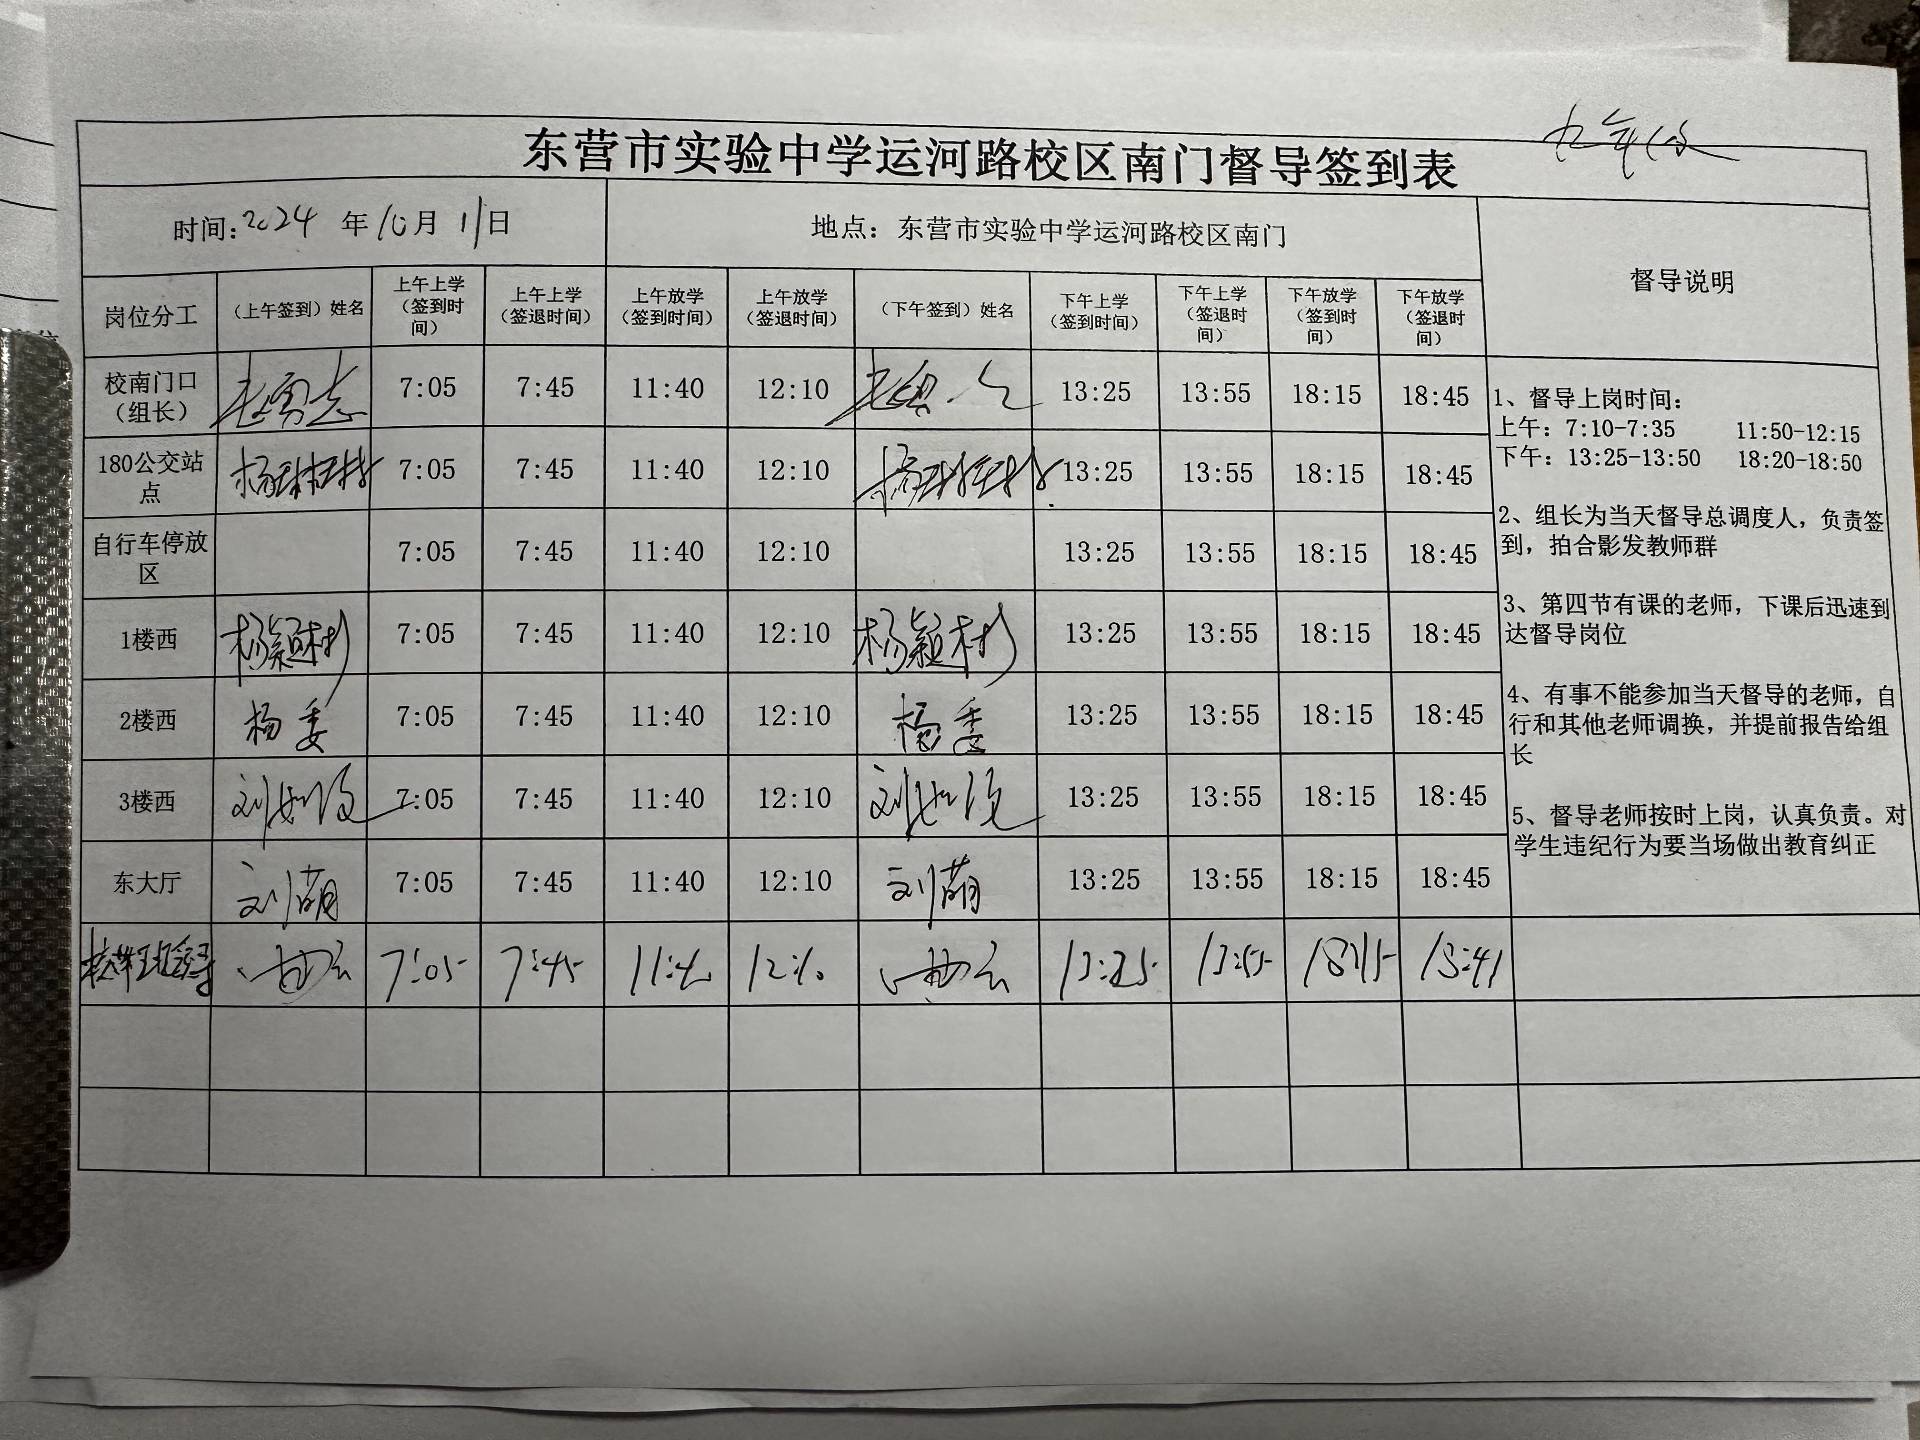 九年级
东营市实验中学运河路校区南门督导签到表
时间:2024 年 10月 11日 地点：东营市实验中学运河路校区南门 督导说明
岗位分工 （上午签到）姓名 上午上学（签到时间） 上午上学（签退时间） 上午放学（签到时间） 上午放学（签退时间） （下午签到）姓名 下午上学（签到时间） 下午上学（签退时间） 下午放学（签到时间） 下午放学（签退时间）
校南门口（组长） 7:05 7:45 11:40 12:10 13:25 13:55 18:15 18:45
180公交站点 杨琳琳 7:05 7:45 11:40 12:10 杨琳琳 13:25 13:55 18:15 18:45
自行车停放区 7:05 7:45 11:40 12:10 13:25 13:55 18:15 18:45
1楼西 杨颖彬 7:05 7:45 11:40 12:10 杨颖彬 13:25 13:55 18:15 18:45
2楼西 杨委 7:05 7:45 11:40 12:10 杨委 13:25 13:55 18:15 18:45
3楼西 刘 7:05 7:45 11:40 12:10 刘 13:25 13:55 18:15 18:45
东大厅 刘萌 7:05 7:45 11:40 12:10 刘萌 13:25 13:55 18:15 18:45
7:05 7:45 11:40 12:10 13:25 13:55 18:15 18:41
1、督导上岗时间：
上午：7:10-7:35 11:50-12:15
下午：13:25-13:50 18:20-18:50
2、组长为当天督导总调度人，负责签
到，拍合影发教师群
3、第四节有课的老师，下课后迅速到
达督导岗位
4、有事不能参加当天督导的老师，自
行和其他老师调换，并提前报告给组
长
5、督导老师按时上岗，认真负责。对
学生违纪行为要当场做出教育纠正